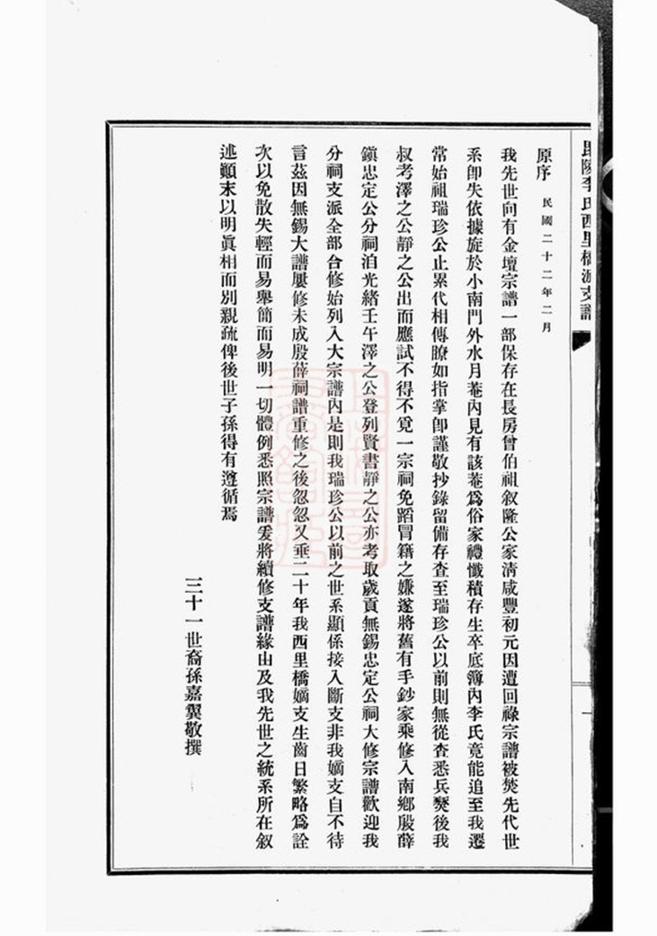 毘陵李氏西里橋派支譜
原序 民國二十二年二月
我先世向有金壇宗譜一部保存在長房曾伯祖叙隆公家淸咸豐初元因遭回祿宗譜被焚先代世
系卽失依據旋於小南門外水月菴內見有該菴爲俗家禮懺積存生卒底簿內李氏竟能追至我遷
常始祖瑞珍公止累代相傳瞭如指掌卽謹敬抄錄留備存查至瑞珍公以前則無從查悉兵燹後我
叔考澤之公靜之公出而應試不得不覓一宗祠免蹈冒籍之嫌遂將舊有手鈔家乘修入南鄉殷薛
鎭忠定公分祠洎光緖壬午澤之公登列賢書靜之公亦考取歲貢無錫忠定公祠大修宗譜歡迎我
分祠支派全部合修始列入大宗譜內是則我瑞珍公以前之世系顯係接入斷支非我嫡支自不待
言茲因無錫大譜屢修未成殷薛祠譜重修之後忽忽又垂二十年我西里橋嫡支生齒日繁略爲詮
次以免散失輕而易舉簡而易明一切體例悉照宗譜爰將續修支譜緣由及我先世之統系所在叙
述顚末以明眞相而別親疏俾後世子孫得有遵循焉
三十一世裔孫嘉翼敬撰
一